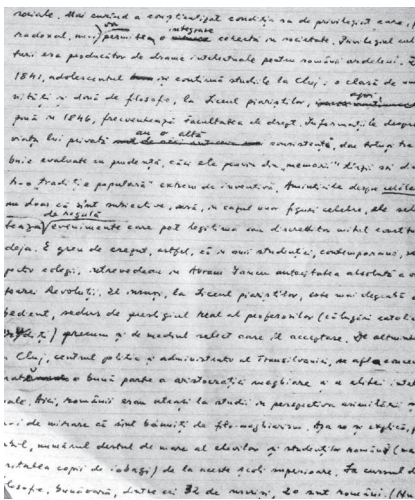 sociale. Mai curînd a complicatizat condiția sa de privilegiat care,
radoxal, nu-i permitea o integrare coerentă în societate. Privilegiul cul
turii era producător de drame intelectuale pentru românii ardeleni.
1841, adolescentul își continuă studiile la Cluj: o clasă de
nități și două de filosofie, la Liceul piariștilor, apoi
pînă în 1846, frecventează Facultatea de drept. Informațiile despre
viața lui privată au o altă consistență, dar totuși tre
buie evaluate cu prudență, căci ele provin din „memorii" tîrzii sau
tr-o „tradiție populară" extrem de inventivă. Amintirile despre celebr
nu doar că sînt subiective, însă, în cazul unor figuri celebre, ele sele
tează de regulă evenimente care pot legitima sau discredita mitul constituit
deja. E greu de crezut, astfel, că în anii studenției, contemporanii,
putu colegi, întrevedeau în Avram Iancu autoritatea absolută a
toarei Revoluții. El însuși, la Liceul piariștilor, este mai degrabă
bedient, sedus de prestigiul real al profesorilor (călugări catolici
) precum și de mediul select care îl acceptase. De altminteri
Cluj, centrul politic și administrativ al Transilvaniei, se afla concen
trată o bună parte a aristocrației maghiare și a elitei intele
ale. Aici, românii erau aleși la studii în perspectiva asimilării
noi de mirare că sînt bănuiți de filo-maghiarism. Așa se și explică,
tfel, numărul destul de mare al elevilor și studenților români (ma
ritatea copii de iobagi) de la aceste școli superioare. În cursul
losofie, bunăoară, dintre cei 32 de înscriși, 20 sînt români.